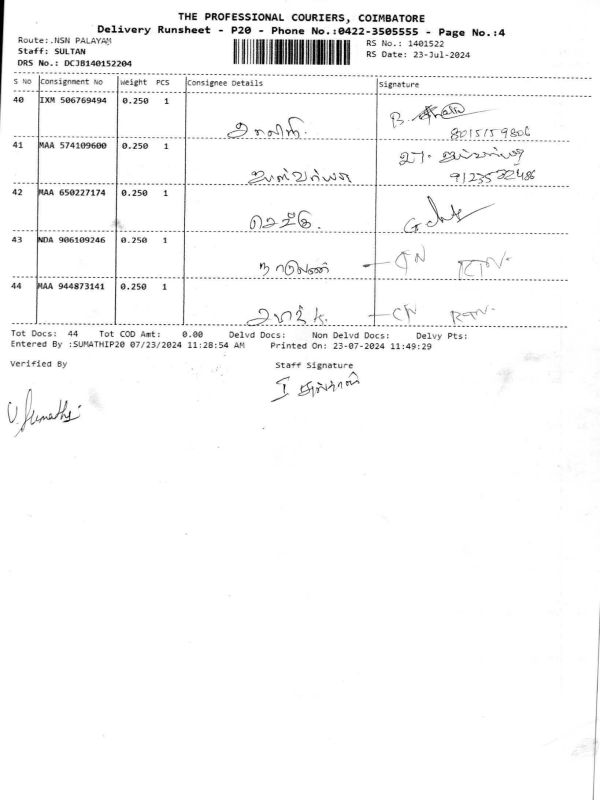 THE PROFESSIONAL COURIERS, COIMBATORE
Delivery Runsheet - P20 - Phone No.:0422-3505555 - Page No.:4
Route:.NSN PALAYAM
RS No.: 1401522
Staff: SULTAN
RS Date: 23-Jul-2024
DRS No.: DCJB140152204
S No Consignment No Weight PCS Consignee Details Signature
40 IXM 506769494 0.250 1
8015159806
41 MAA 574109600 0.250 1
9123582486
42 MAA 650227174 0.250 1
43 NDA 906109246 0.250 1 - CN RTN.
44 MAA 944873141 0.250 1 - CN RTN.
Tot Docs: 44 Tot COD Amt: 0.00 Delvd Docs: Non Delvd Docs: Delvy Pts:
Entered By :SUMATHIP20 07/23/2024 11:28:54 AM Printed On: 23-07-2024 11:49:29
Verified By Staff Signature
V. Sumathi